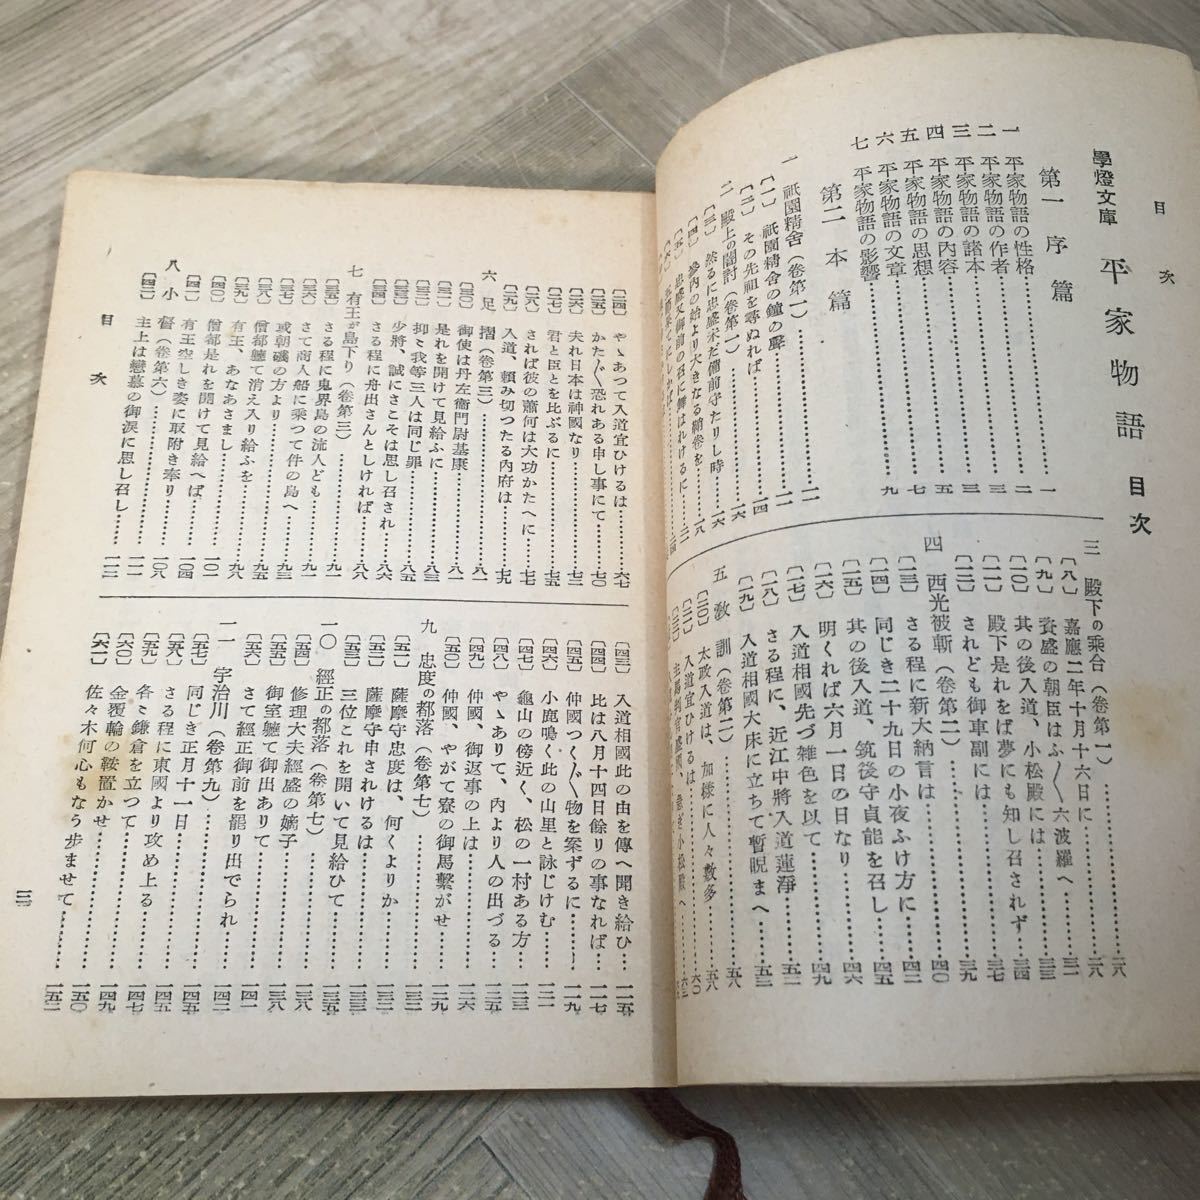 目次
學燈文庫 平家物語 目次
第一 序篇
一 平家物語の性格…一
二 平家物語の作者…二
三 平家物語の諸本…三
四 平家物語の內容…三
五 平家物語の思想…五
六 平家物語の文章…七
七 平家物語の影響…九
第二 本篇
一 祇園精舍(卷第一)…一一
〔一〕 祇園精舍の鐘の聲…一一
〔二〕 その先祖を尋ぬれば…一四
二 殿上の闇討(卷第一)…一六
〔三〕 然るに忠盛未だ備前守たりし時…一六
〔四〕 參內の始より大きなる鞘卷を…一八
〔五〕 忠盛又御前の召に舞はれけるに…二一
三 殿下の乘合(卷第一)…二八
〔八〕 嘉應二年十月十六日に…二八
〔九〕 資盛の朝臣はふ〳〵六波羅へ…三一
〔一〇〕 其の後入道、小松殿には…三三
〔一一〕 殿下是れをば夢にも知し召されず…三四
〔一二〕 されども御車副には…三七
四 西光被斬(卷第二)…三九
〔一三〕 さる程に新大納言は…四〇
〔一四〕 同じき二十九日の小夜ふけ方に…四二
〔一五〕 其の後入道、筑後守貞能を召し…四五
〔一六〕 明くれば六月一日の日なり…四六
〔一七〕 入道相國先づ雜色を以て…四九
〔一八〕 さる程に、近江中將入道蓮淨…五二
〔一九〕 入道相國大床に立ちて暫睨まへ…五三
五 敎訓(卷第二)…五八
〔二〇〕 太政入道は、加樣に人々數多…五八
〔二一〕 入道宜ひけるは…六〇
〔二二〕 主馬判官盛國、急ぎ小松殿へ
〔二四〕 やゝあつて入道宜ひけるは…六七
〔二五〕 かた〴〵恐れある申し事にて…七〇
〔二六〕 夫れ日本は神國なり…七二
〔二七〕 君と臣とを比ぶるに…七五
〔二八〕 されば彼の蕭何は大功かたへに…七七
〔二九〕 入道、賴み切つたる內府は…七九
六 足摺(卷第三)…八一
〔三〇〕 御使は丹左衞門尉基康…八一
〔三一〕 是れを開けて見給ふに…八三
〔三二〕 抑〻我等三人は同じ罪…八五
〔三三〕 少將、誠にさこそは思し召され…八六
〔三四〕 さる程に舟出さんとしければ…八八
七 有王が島下り(卷第三)…九一
〔三五〕 さる程に鬼界島の流人ども…九一
〔三六〕 さて商人船に乘つて件の島へ…九三
〔三七〕 或朝磯の方より…九五
〔三八〕 僧都軈て消え入り給ふを…九八
〔三九〕 有王、あなあさまし…一〇一
〔四〇〕 僧都是れを開けて見給へば…一〇四
〔四一〕 有王空しき姿に取附き奉り…一〇八
八 小督(卷第六)…一一一
〔四二〕 主上は戀慕の御淚に思し召し…一一二
目次
〔四三〕 入道相國此の由を傳へ聞き給ひ…一一五
〔四四〕 比は八月十四日餘りの事なれば…一一七
〔四五〕 仲國つく〴〵物を案ずるに…一一九
〔四六〕 小鹿鳴く此の山里と詠じけむ…一二一
〔四七〕 龜山の傍近く、松の一村ある方…一二三
〔四八〕 やゝありて、內より人の出づる…一二五
〔四九〕 仲國、御返事の上は…一二六
〔五〇〕 仲國、やがて寮の御馬繫がせ…一二九
九 忠度の都落(卷第七)…一三一
〔五一〕 薩摩守忠度は、何くよりか…一三一
〔五二〕 薩摩守申されけるは…一三三
〔五三〕 三位これを開いて見給ひて…一三五
一〇 經正の都落(卷第七)…一三八
〔五四〕 修理大夫經盛の嫡子…一三八
〔五五〕 御室軈て御出ありて…一四一
〔五六〕 さて經正御前を罷り出でられ…一四二
一一 宇治川(卷第九)…一四五
〔五七〕 同じき正月十一日…一四五
〔五八〕 さる程に東國より攻め上る…一四七
〔五九〕 各〻鎌倉を立つて…一四九
〔六〇〕 金覆輪の鞍置かせ…一五〇
〔六一〕 佐々木何心もなう步ませて…一五二
三